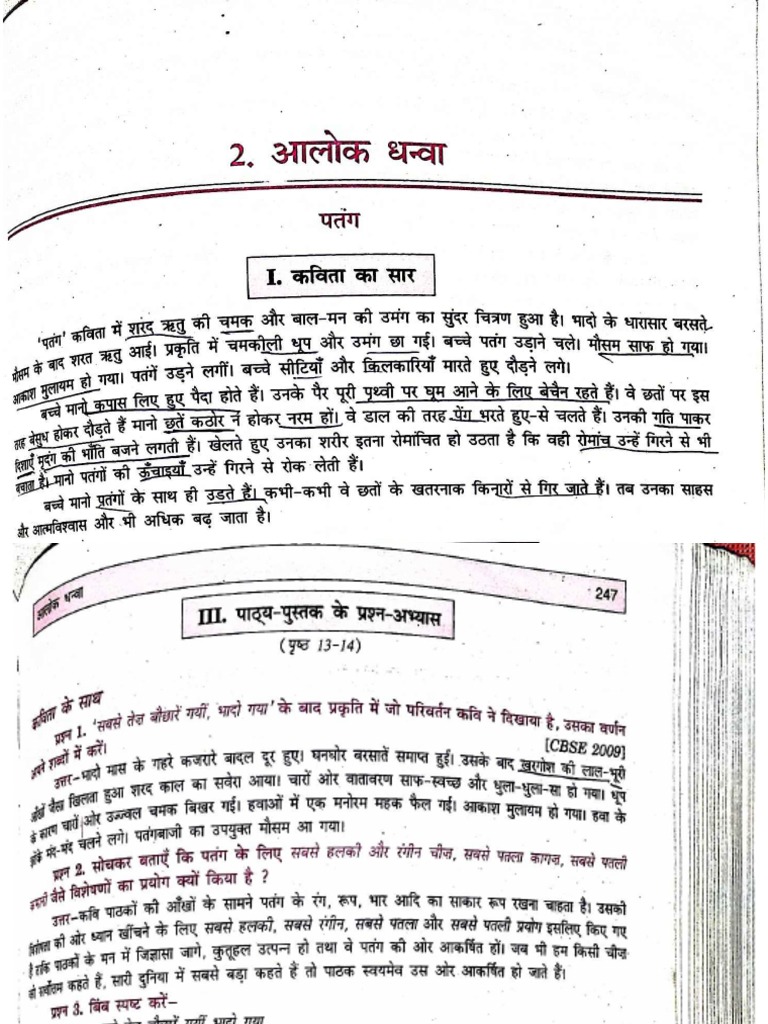 2. आलोक धन्वा
पतंग
I. कविता का सार
'पतंग' कविता में शरद ऋतु की चमक और बाल-मन की उमंग का सुंदर चित्रण हुआ है। भादो के धारासार बरसते
मौसम के बाद शरत ऋतु आई। प्रकृति में चमकीली धूप और उमंग छा गई। बच्चे पतंग उड़ाने चले। मौसम साफ हो गया।
आकाश मुलायम हो गया। पतंगें उड़ने लगीं। बच्चे सीटियाँ और किलकारियाँ मारते हुए दौड़ने लगे।
बच्चे मानो कपास लिए हुए पैदा होते हैं। उनके पैर पूरी पृथ्वी पर घूम आने के लिए बेचैन रहते हैं। वे छतों पर इस
तरह बेसुध होकर दौड़ते हैं मानो छतें कठोर न होकर नरम हों। वे डाल की तरह पेंग भरते हुए-से चलते हैं। उनकी गति पाकर
दिशाएँ मृदंग की भाँति बजने लगती हैं। खेलते हुए उनका शरीर इतना रोमांचित हो उठता है कि वही रोमांच उन्हें गिरने से भी
बचाता है। मानो पतंगों की ऊँचाइयाँ उन्हें गिरने से रोक लेती हैं।
बच्चे मानो पतंगों के साथ ही उड़ते हैं। कभी-कभी वे छतों के खतरनाक किनारों से गिर जाते हैं। तब उनका साहस
और आत्मविश्वास और भी अधिक बढ़ जाता है।
आलोक धन्वा
247
III. पाठ्य-पुस्तक के प्रश्न-अभ्यास
(पृष्ठ 13-14)
कविता के साथ
प्रश्न 1. 'सबसे तेज़ बौछारें गयीं, भादो गया' के बाद प्रकृति में जो परिवर्तन कवि ने दिखाया है, उसका वर्णन
अपने शब्दों में करें।
[CBSE 2009]
उत्तर-भादो मास के गहरे कजरारे बादल दूर हुए। घनघोर बरसातें समाप्त हुईं। उसके बाद खरगोश की लाल-भूरी
आँखों जैसा खिलता हुआ शरद काल का सवेरा आया। चारों ओर वातावरण साफ-स्वच्छ और धुला-धुला-सा हो गया। धूप
के कारण चारों ओर उज्ज्वल चमक बिखर गई। हवाओं में एक मनोरम महक फैल गई। आकाश मुलायम हो गया। हवा के
झोंके मंद-मंद चलने लगे। पतंगबाजी का उपयुक्त मौसम आ गया।
प्रश्न 2. सोचकर बताएँ कि पतंग के लिए सबसे हलकी और रंगीन चीज़, सबसे पतला कागज़, सबसे पतली
कमानी जैसे विशेषणों का प्रयोग क्यों किया है ?
उत्तर-कवि पाठकों की आँखों के सामने पतंग के रंग, रूप, भार आदि का साकार रूप रखना चाहता है। उसकी
विशेषता की ओर ध्यान खींचने के लिए सबसे हलकी, सबसे रंगीन, सबसे पतला और सबसे पतली प्रयोग इसलिए किए गए
हैं ताकि पाठकों के मन में जिज्ञासा जागे, कुतूहल उत्पन्न हो तथा वे पतंग की ओर आकर्षित हों। जब भी हम किसी चीज़
को सर्वोत्तम कहते हैं, सारी दुनिया में सबसे बड़ा कहते हैं तो पाठक स्वयमेव उस ओर आकर्षित हो जाते हैं।
प्रश्न 3. बिंब स्पष्ट करें-
सबसे तेज़ बौछारें गयीं भादो गया